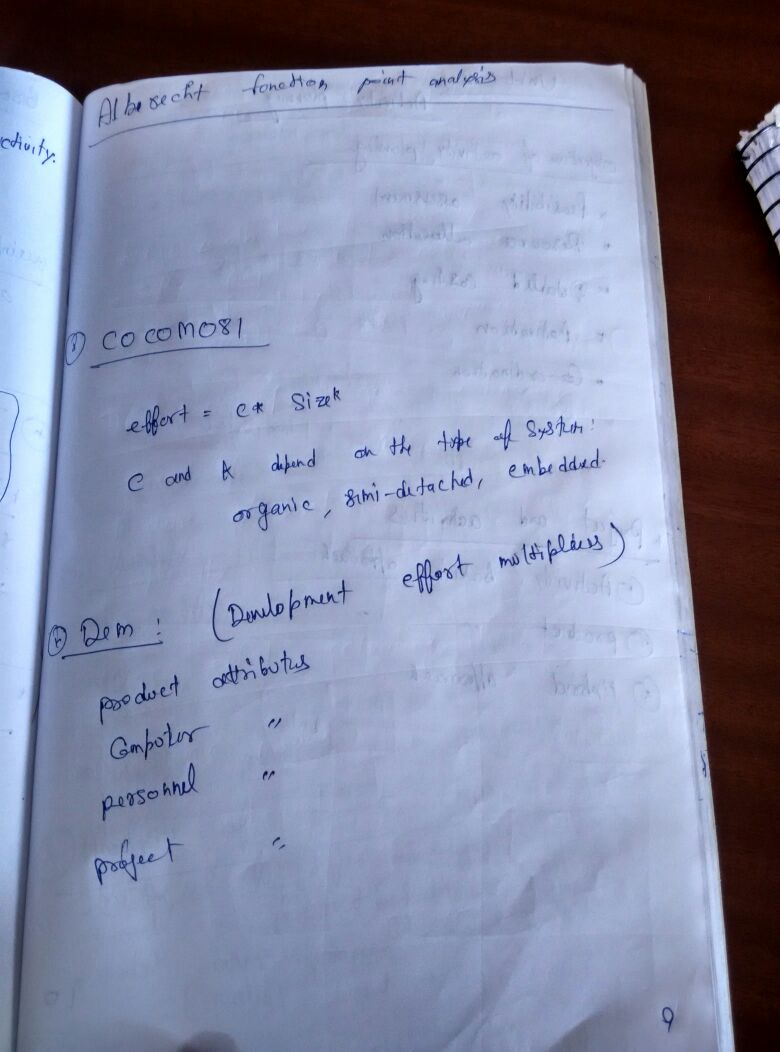 ctivity.
Alberecht fonction point analysis
COCOMO81
effort = c* Sizek
c and k depend on the type of System:
organic, simi-detached, embedded.
Dem : (Development effort multipliers)
product attributes
Computer "
personnel "
project "
9